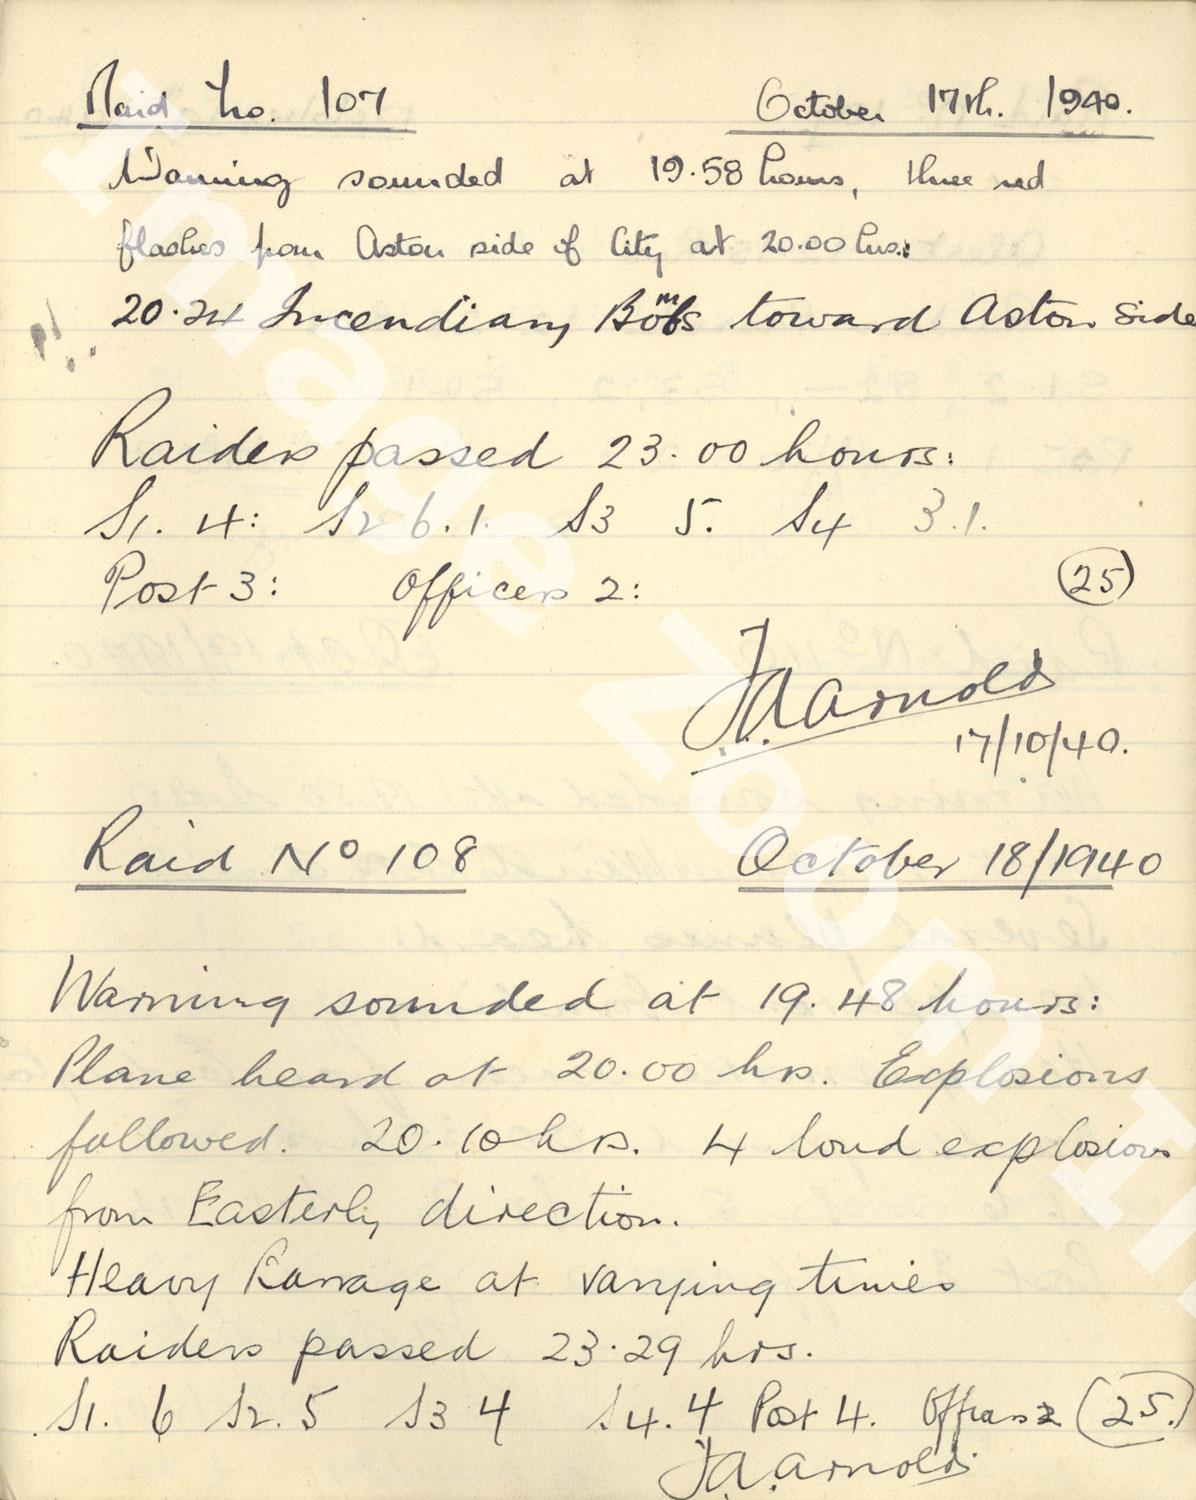 Raid No. 107 October 17th. 1940.
Warning sounded at 19.58 hours, three red
flashes from Aston side of City at 20.00 hrs.:
20.24 Incendiary Bombs toward Aston Side
Raiders passed 23.00 hours:
S1. 4: S2 6.1. S3 5. S4 3.1.
Post 3: Officers 2: 25
J.A. Arnold
17/10/40.
Raid No 108 October 18/1940
Warning sounded at 19.48 hours:
Plane heard at 20.00 hrs. Explosions
followed. 20.10 hrs. 4 loud explosions
from Easterly direction.
Heavy Barrage at varying times
Raiders passed 23.29 hrs.
S1. 6 S2. 5 S3 4 S4. 4 Post 4. Officers 2 (25.)
J.A. Arnold.